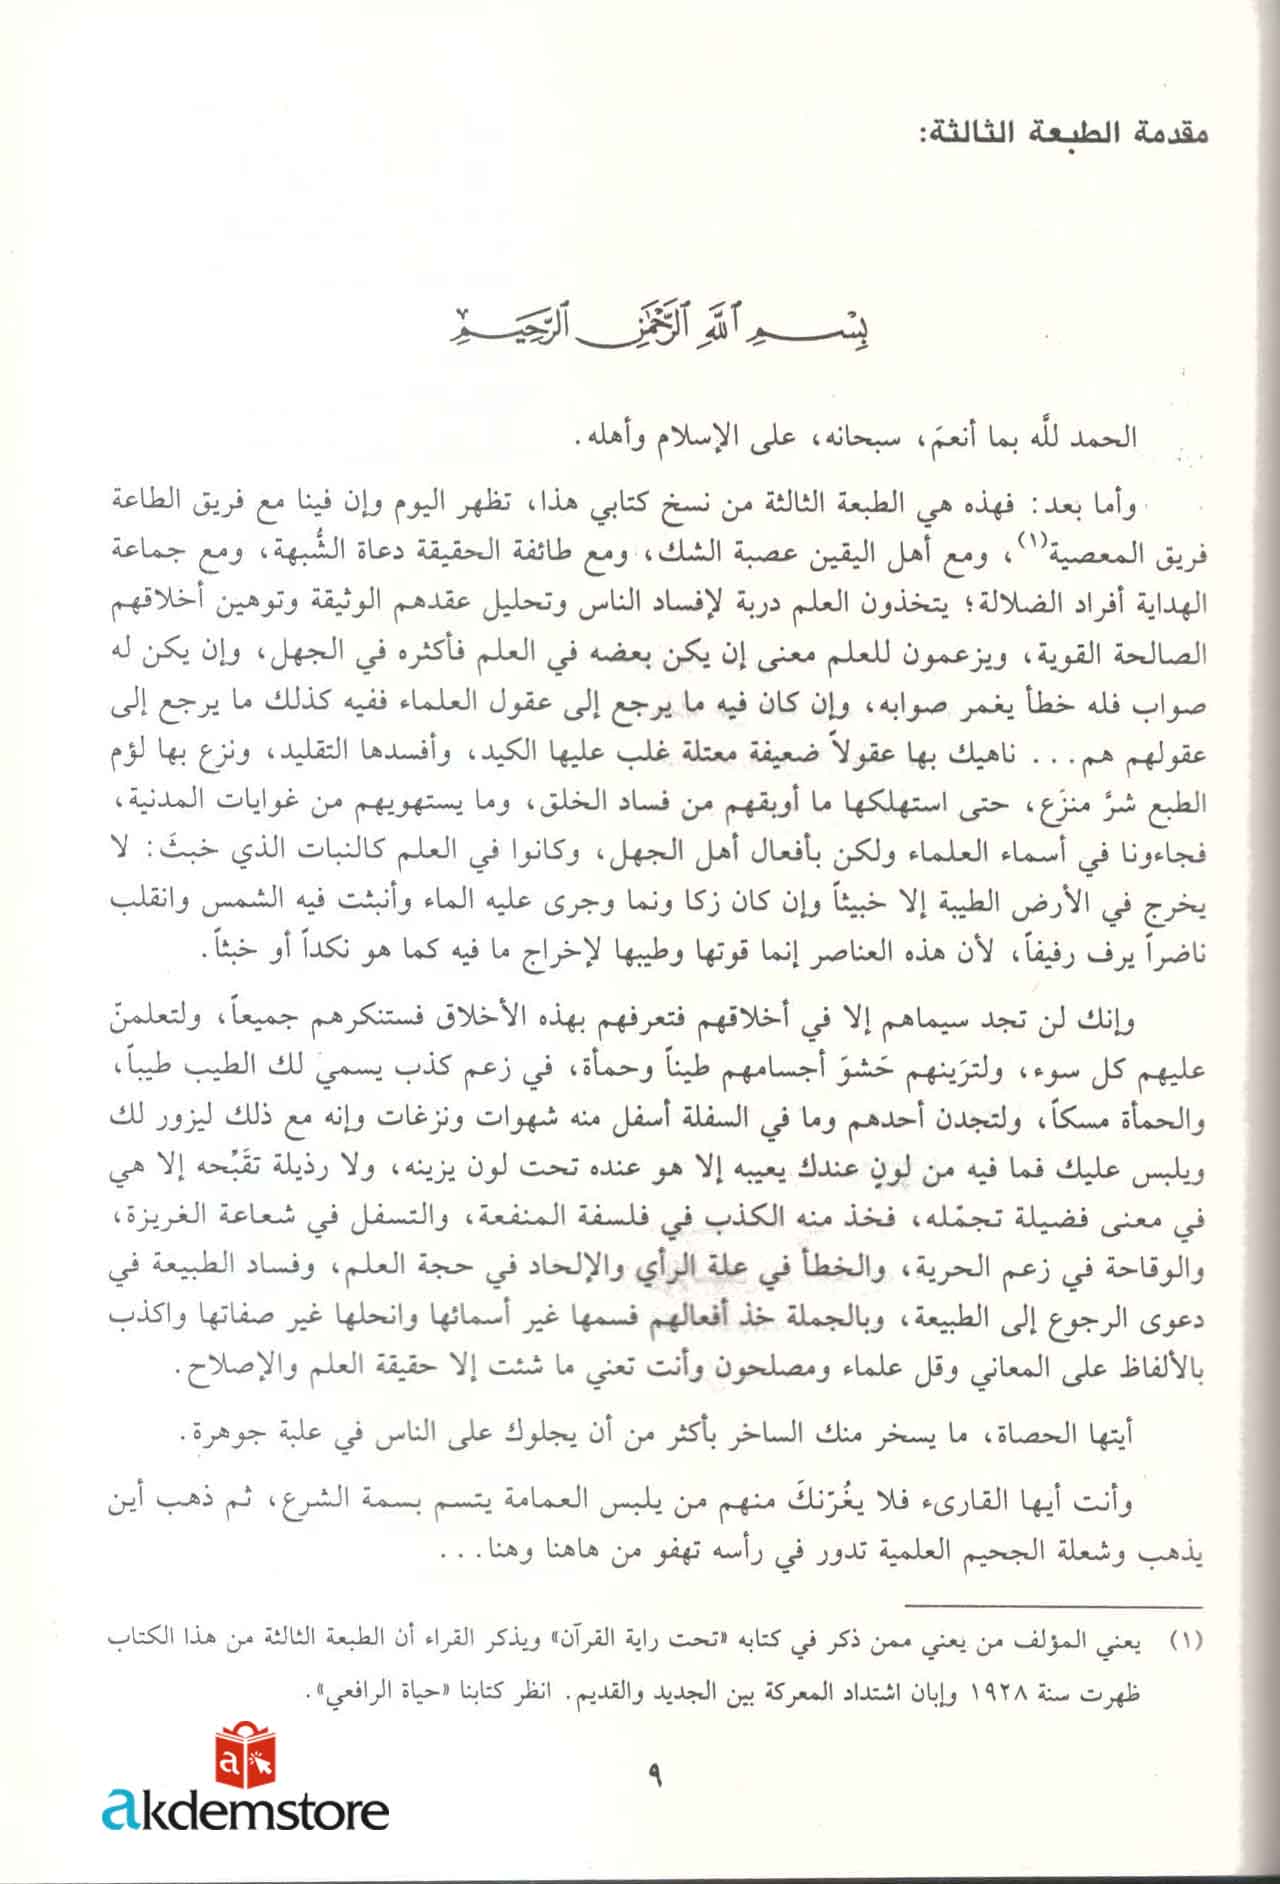 مقدمة الطبعة الثالثة:
بِسْمِ اللَّهِ الرَّحْمَٰنِ الرَّحِيمِ
الحمد للَّه بما أنعمَ، سبحانه، على الإسلام وأهله.
وأما بعد: فهذه هي الطبعة الثالثة من نسخ كتابي هذا، تظهر اليوم وإن فينا مع فريق الطاعة
فريق المعصية(١)، ومع أهل اليقين عصبة الشك، ومع طائفة الحقيقة دعاة الشُّبهة، ومع جماعة
الهداية أفراد الضلالة؛ يتخذون العلم دربة لإفساد الناس وتحليل عقدهم الوثيقة وتوهين أخلاقهم
الصالحة القوية، ويزعمون للعلم معنى إن يكن بعضه في العلم فأكثره في الجهل، وإن يكن له
صواب فله خطأ يغمر صوابه، وإن كان فيه ما يرجع إلى عقول العلماء ففيه كذلك ما يرجع إلى
عقولهم هم... ناهيك بها عقولاً ضعيفة معتلة غلب عليها الكيد، وأفسدها التقليد، ونزع بها لؤم
الطبع شرَّ منزَع، حتى استهلكها ما أوبقهم من فساد الخلق، وما يستهويهم من غوايات المدنية،
فجاءونا في أسماء العلماء ولكن بأفعال أهل الجهل، وكانوا في العلم كالنبات الذي خبثَ: لا
يخرج في الأرض الطيبة إلا خبيثاً وإن كان زكا ونما وجرى عليه الماء وأنبثت فيه الشمس وانقلب
ناضراً يرف رفيفاً، لأن هذه العناصر إنما قوتها وطيبها لإخراج ما فيه كما هو نكداً أو خبثاً.
وإنك لن تجد سيماهم إلا في أخلاقهم فتعرفهم بهذه الأخلاق فستنكرهم جميعاً، ولتعلمنّ
عليهم كل سوء، ولترَينهم حَشوَ أجسامهم طيناً وحمأة، في زعم كذب يسمي لك الطيب طيباً،
والحمأة مسكاً، ولتجدن أحدهم وما في السفلة أسفل منه شهوات ونزغات وإنه مع ذلك ليزور لك
ويلبس عليك فما فيه من لونٍ عندك يعيبه إلا هو عنده تحت لون يزينه، ولا رذيلة تقَبِّحه إلا هي
في معنى فضيلة تجمّله، فخذ منه الكذب في فلسفة المنفعة، والتسفل في شعاعة الغريزة،
والوقاحة في زعم الحرية، والخطأ في علة الرأي والإلحاد في حجة العلم، وفساد الطبيعة في
دعوى الرجوع إلى الطبيعة، وبالجملة خذ أفعالهم فسمها غير أسمائها وانحلها غير صفاتها واكذب
بالألفاظ على المعاني وقل علماء ومصلحون وأنت تعني ما شئت إلا حقيقة العلم والإصلاح.
أيتها الحصاة، ما يسخر منك الساخر بأكثر من أن يجلوك على الناس في علبة جوهرة.
وأنت أيها القارىء فلا يغُرّنكَ منهم من يلبس العمامة يتسم بسمة الشرع، ثم ذهب أين
يذهب وشعلة الجحيم العلمية تدور في رأسه تهفو من هاهنا وهنا...
(١) يعني المؤلف من يعني ممن ذكر في كتابه «تحت راية القرآن» ويذكر القراء أن الطبعة الثالثة من هذا الكتاب
ظهرت سنة ١٩٢٨ وإبان اشتداد المعركة بين الجديد والقديم. انظر كتابنا «حياة الرافعي».
٩
a
akdemstore